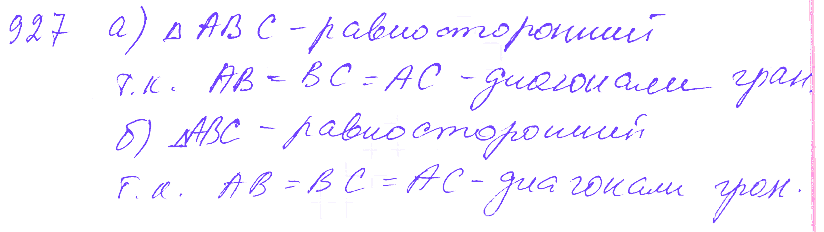 927 а) △ ABC - равносторонний
т.к. AB = BC = AC - диагонали гран.
б) △ABC - равносторонний
т.к. AB = BC = AC - диагонали гран.